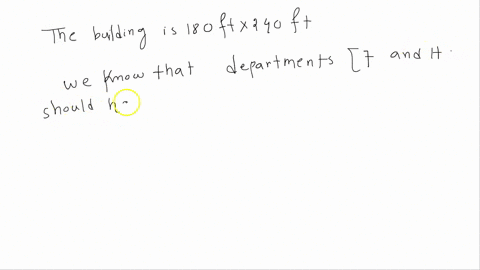 The bulding is 180 ft x 240 ft
we know that departments [7 and H.
should h